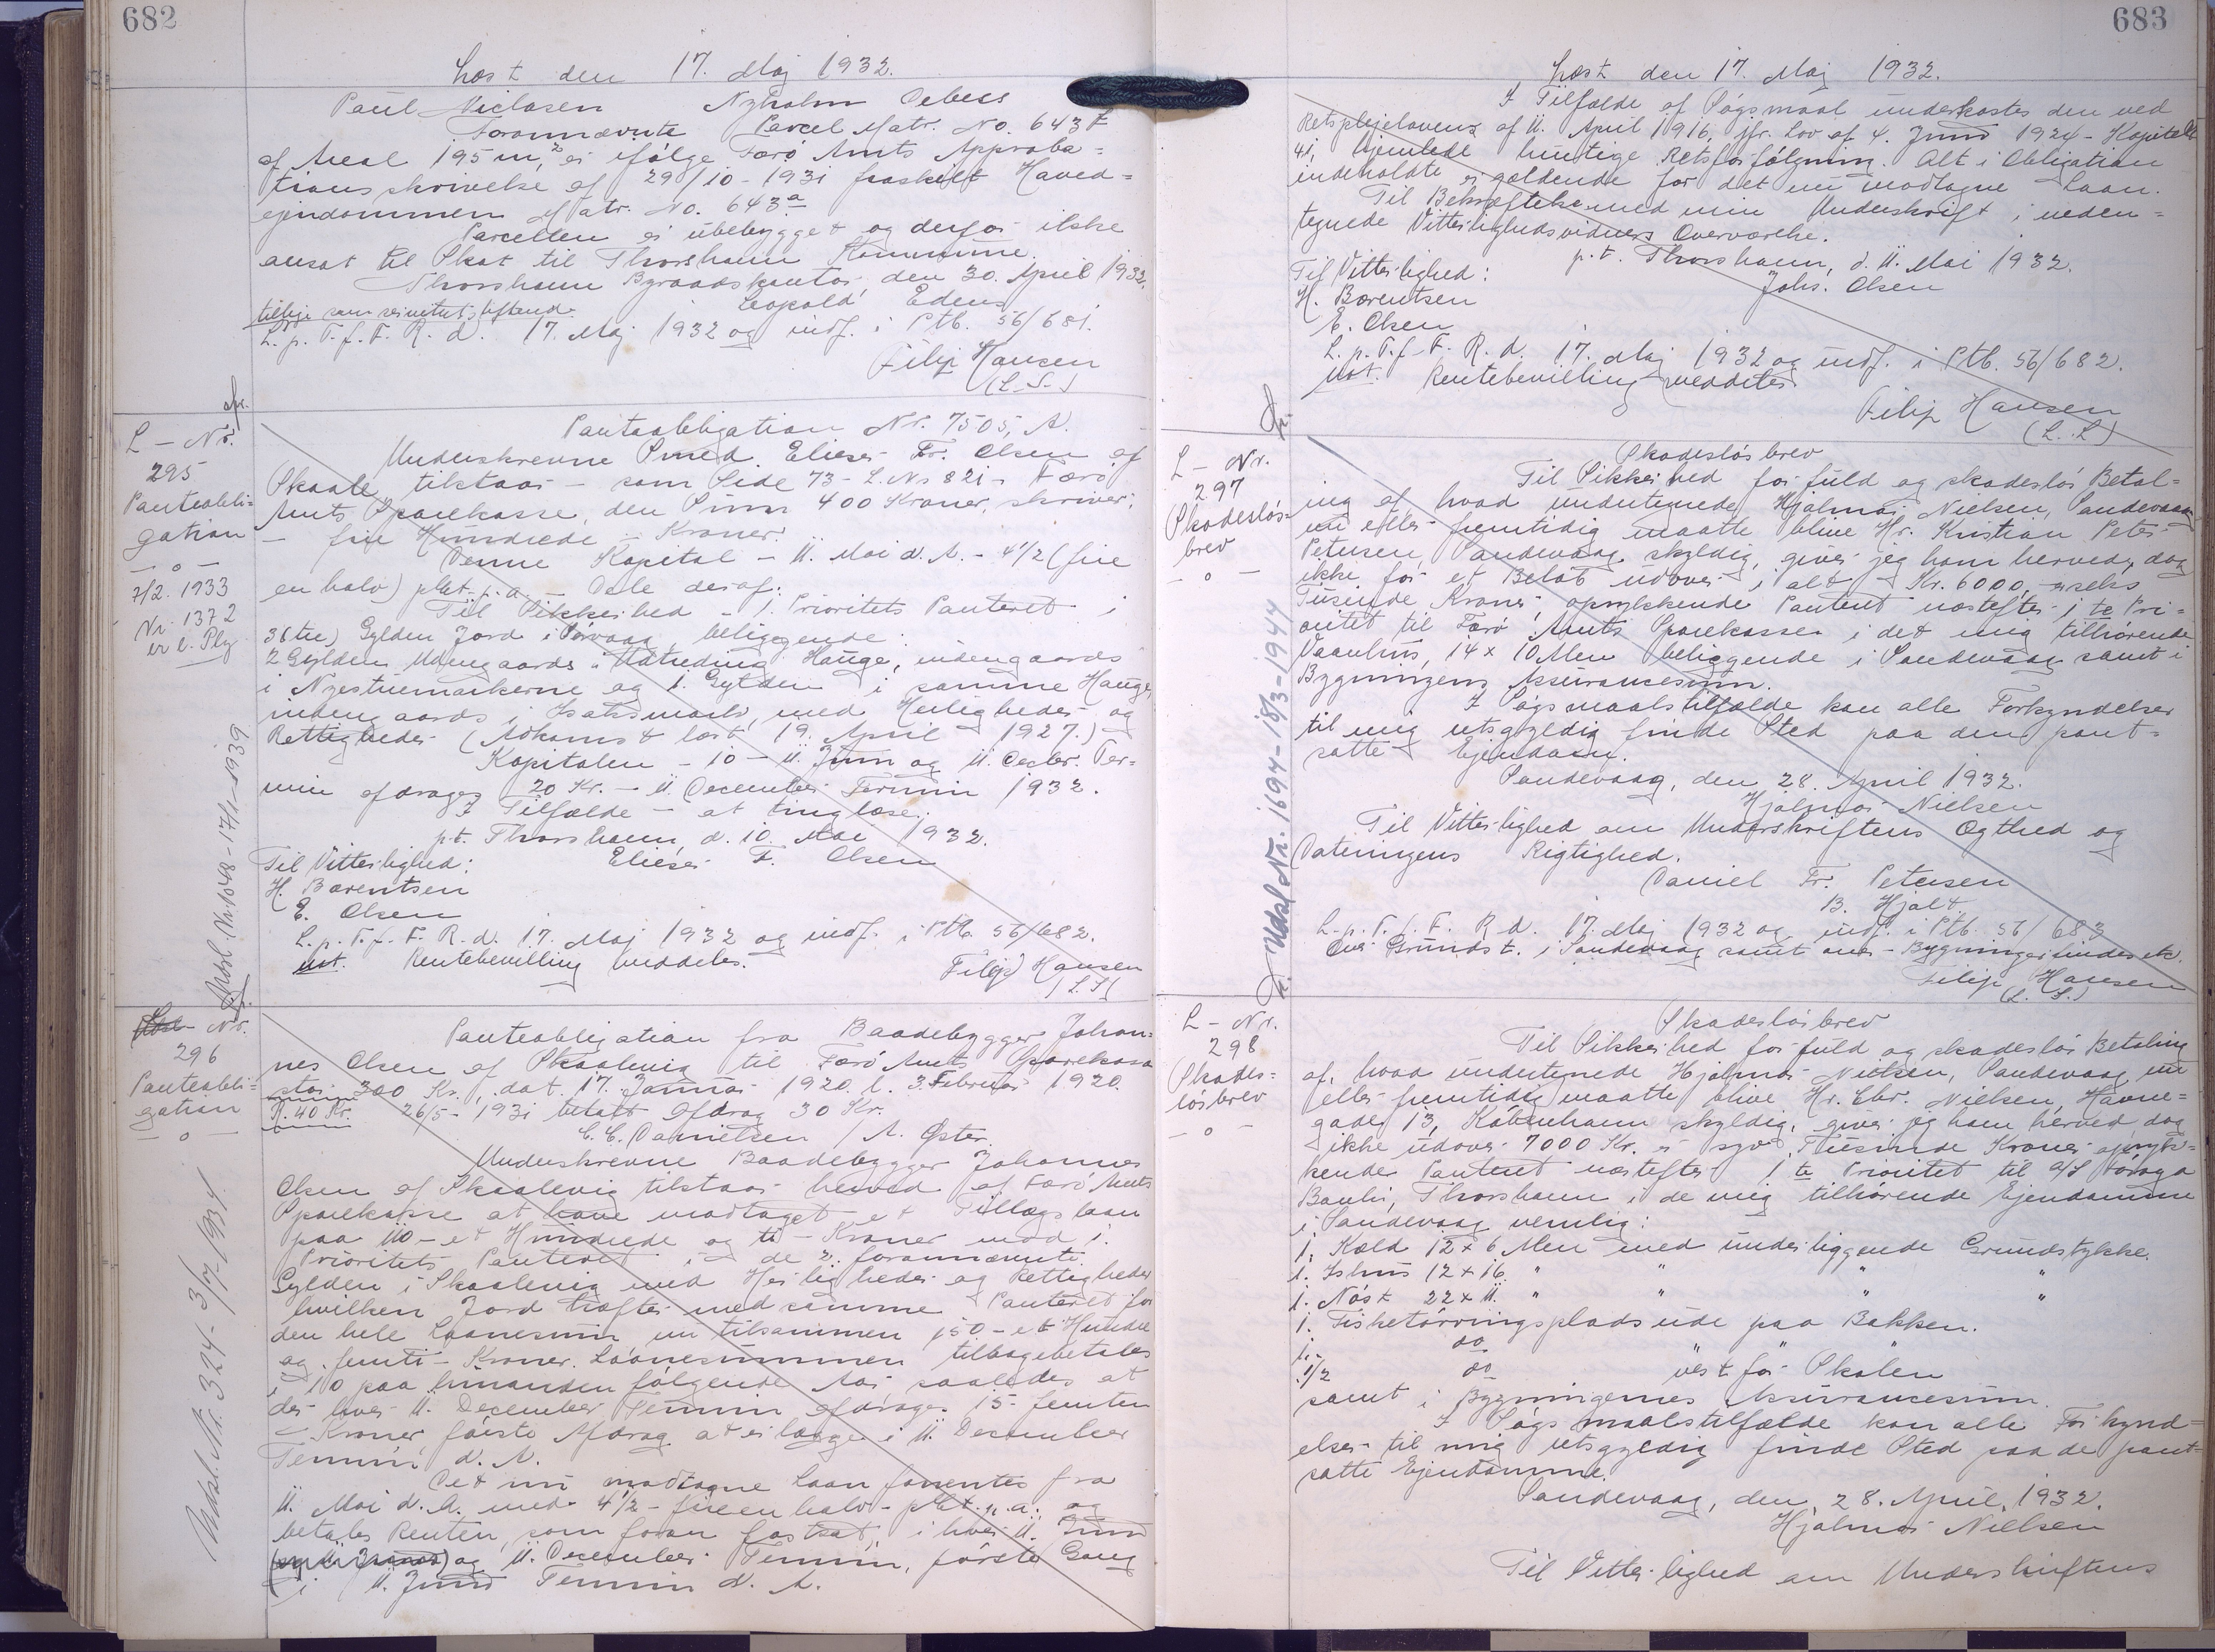 682
Læst den 17. Maj 1932.
Paul Niclasen Nyholm Debess
Forannævnte Parcel Matr. No. 643 f
af Areal 195 m², er ifølge Færø Amts Approba=
tionsskrivelse af 29/10-1931 fraskilt Hoved=
ejendommen Matr. No. 643 a
Parcellen er ubebygget og derfor ikke
ansat til Skat til Thorshavn Kommune.
Thorshavn Byraadskontor, den 30. April 1932.
Leopold
tillige som servitutstiftende.
L. p. T. f. F. R. d. 17. Maj 1932 og indf. i Ptb. 56/681.
Filip Hansen
(L.S.)
L-Nr.
295
Panteobli=
gation
— o —
7/2. 1933
Nr. 1372
er l. Plg
Udsl. Nr. 1048 - 17/1-1939
Panteobligation Nr. 7505, A.
Underskrevne Smed Elieser Fr. Olsen af
Skaale tilstaar - som Side 73 - L. Nr 821 - Færø
Amts Sparekasse, den Sum 400 Kroner, skriver:
— fire Hundrede — Kroner.
Denne Kapital - 11. Mai d. A. - 4 1/2 (fire
en halv) pCt. p. a. — Dele deraf.
Til Sikkerhed - 1. Prioritets Panteret i
3 (tre) Gylden Jord i Sørvaag, beliggende:
2 Gylden Udengaards i Hauge, indengaards
i Nyestuemarkerne og 1. Gylden i samme Hauge,
indengaards i med Herligheder og
Rettigheder (Adkomst læst 19. April 1927.)
Kapitalen - 10 - 11. Juni og 11. Decbr. Ter=
min afdrages 20 Kr. - 11. December Termin 1932.
I Tilfælde - at tinglæse.
p.t. Thorshavn, d. 10. Mai 1932.
Til Vitterlighed: Elieser F. Olsen
H. Bærentsen
E. Olsen
L. p. T. f. F. R. d. 17. Maj 1932 og indf. i Ptb. 56/682.
not. Rentebevilling meddeles.
Filip Hansen
(L.S)
Nr.
296
Panteobli=
gation
— o —
Udsl. Nr. 324 - 3/7-1934.
Panteobligation fra Baadebygger Johan=
nes Olsen af Skaalevig til Færø Amts Sparekasse
stor 300 Kr., dat. 17. Januar 1920. l. 3. Februar 1920.
R. 40 Kr. 26/5-1931 betalt Afdrag 30 Kr.
C. C. Danielsen / A. Øster.
Underskrevne Baadebygger Johannes
Olsen af Skaalevig tilstaar herved af Færø Amts
Sparekasse at have modtaget et Tillægslaan
paa 110 - et Hundrede og ti - Kroner mod 1.
Prioritets Panteret i de 2 forannævnte
Gylden i Skaalevig med Herligheder og Rettigheder
hvilken Jord hæfter med samme Panteret for
den hele Laanesum nu tilsammen 150 - et Hundre
og femti - Kroner. Laanesummen tilbagebetales
i 10 paa hinanden følgende Aar saaledes at
der hver 11. December Termin afdrages 15 - femten
- Kroner, første Afdrag at erlægge i 11. December
Termin d. A.
Det nu modtagne Laan forrentes fra
11. Mai d. A. med 4 1/2 - fire en halv - pCt. p. a. og
betales Renten, som foran fastsat, i hver 11. Juni
og 11. December Termin, første Gang
i 11. Juni Termin d. A.
683
Læst den 17. Maj 1932.
I Tilfælde af Søgsmaal underkastes den ved
Retsplejelovens af 11. April 1916, jfr. Lov af 4. Juni 1924 - Kapitel
41, hjemlede hurtige Retsforfølgning. Alt i Obligation
indeholdte er gældende for det nu modtagne Laan.
Til Bekræftelse med min Underskrift i neden=
tegnede Vitterlighedsvidners Overværelse.
p.t. Thorshavn, d. 11. Mai 1932.
Til Vitterlighed: Johs. Olsen
H. Bærentsen
E. Olsen
L. p. T. f. F. R. d. 17. Maj 1932 og indf. i Ptb. 56/682.
not. Rentebevilling meddeles
Filip Hansen
(L. S.)
L-Nr.
297
Skadesløs=
brev
— o —
Udsl. Nr. 1694 - 18/3-1944
Skadesløsbrev
Til Sikkerhed for fuld og skadesløs Betal=
ing af hvad undertegnede Hjalmar Nielsen, Sandevaag
nu eller fremtidig maatte blive Hr. Kristian Peter
Petersen, Sandevaag skyldig, giver jeg ham herved, dog
ikke for et Beløb udover i alt Kr. 6000, seks
Tusende Kroner, oprykkende Panteret næstefter 1 te Pri=
oritet til Færø Amts Sparekasse i det mig tilhørende
Vaanhus, 14 x 10 Alen beliggende i Sandevaag samt i
Bygningens Assurancesum.
I Søgsmaalstilfælde kan alle Forkyndelser
til mig retsgyldig finde Sted paa den pant=
satte Ejendom.
Sandevaag, den 28. April 1932.
Hjalmar Nielsen
Til Vitterlighed om Underskriftens Ægthed og
Dateringens Rigtighed.
Daniel Fr. Petersen
B. Hjalt
L. p. T. f. F. R. d. 17. Maj 1932 og indf. i Ptb. 56/683
Grundst. i Sandevaag samt Bygninger
Filip Hansen
(L. S.)
L-Nr.
298
Skades=
løsbrev
— o —
Skadesløsbrev
Til Sikkerhed for fuld og skadesløs Betaling
af, hvad undertegnede Hjalmar Nielsen, Sandevaag nu
eller fremtidig maatte blive Hr. Chr. Nielsen, Havne=
gade 13, København skyldig, giver jeg ham herved dog
ikke udover 7000 Kr. er syv Tusinde Kroner opryk=
kende Panteret næstefter 1 te Prioritet til A/S Føroya
Banki, Thorshavn i de mig tilhørende Ejendomme
i Sandevaag nemlig:
1. Kæld 12 x 6 Alen med underliggende Grundstykke.
1. Ishus 12 x 16 " " " "
1. Nøst 22 x 11. " " " "
1. Fisketørringsplads ude paa Bakken.
1. do
1/2 do vest for Skolen
samt i Bygningernes Assurancesum.
I Søgsmaalstilfælde kan alle Forkynd=
elser til mig retsgyldig finde Sted paa de pant=
satte Ejendomme.
Sandevaag, den 28. April 1932.
Hjalmar Nielsen
Til Vitterlighed om Underskriftens